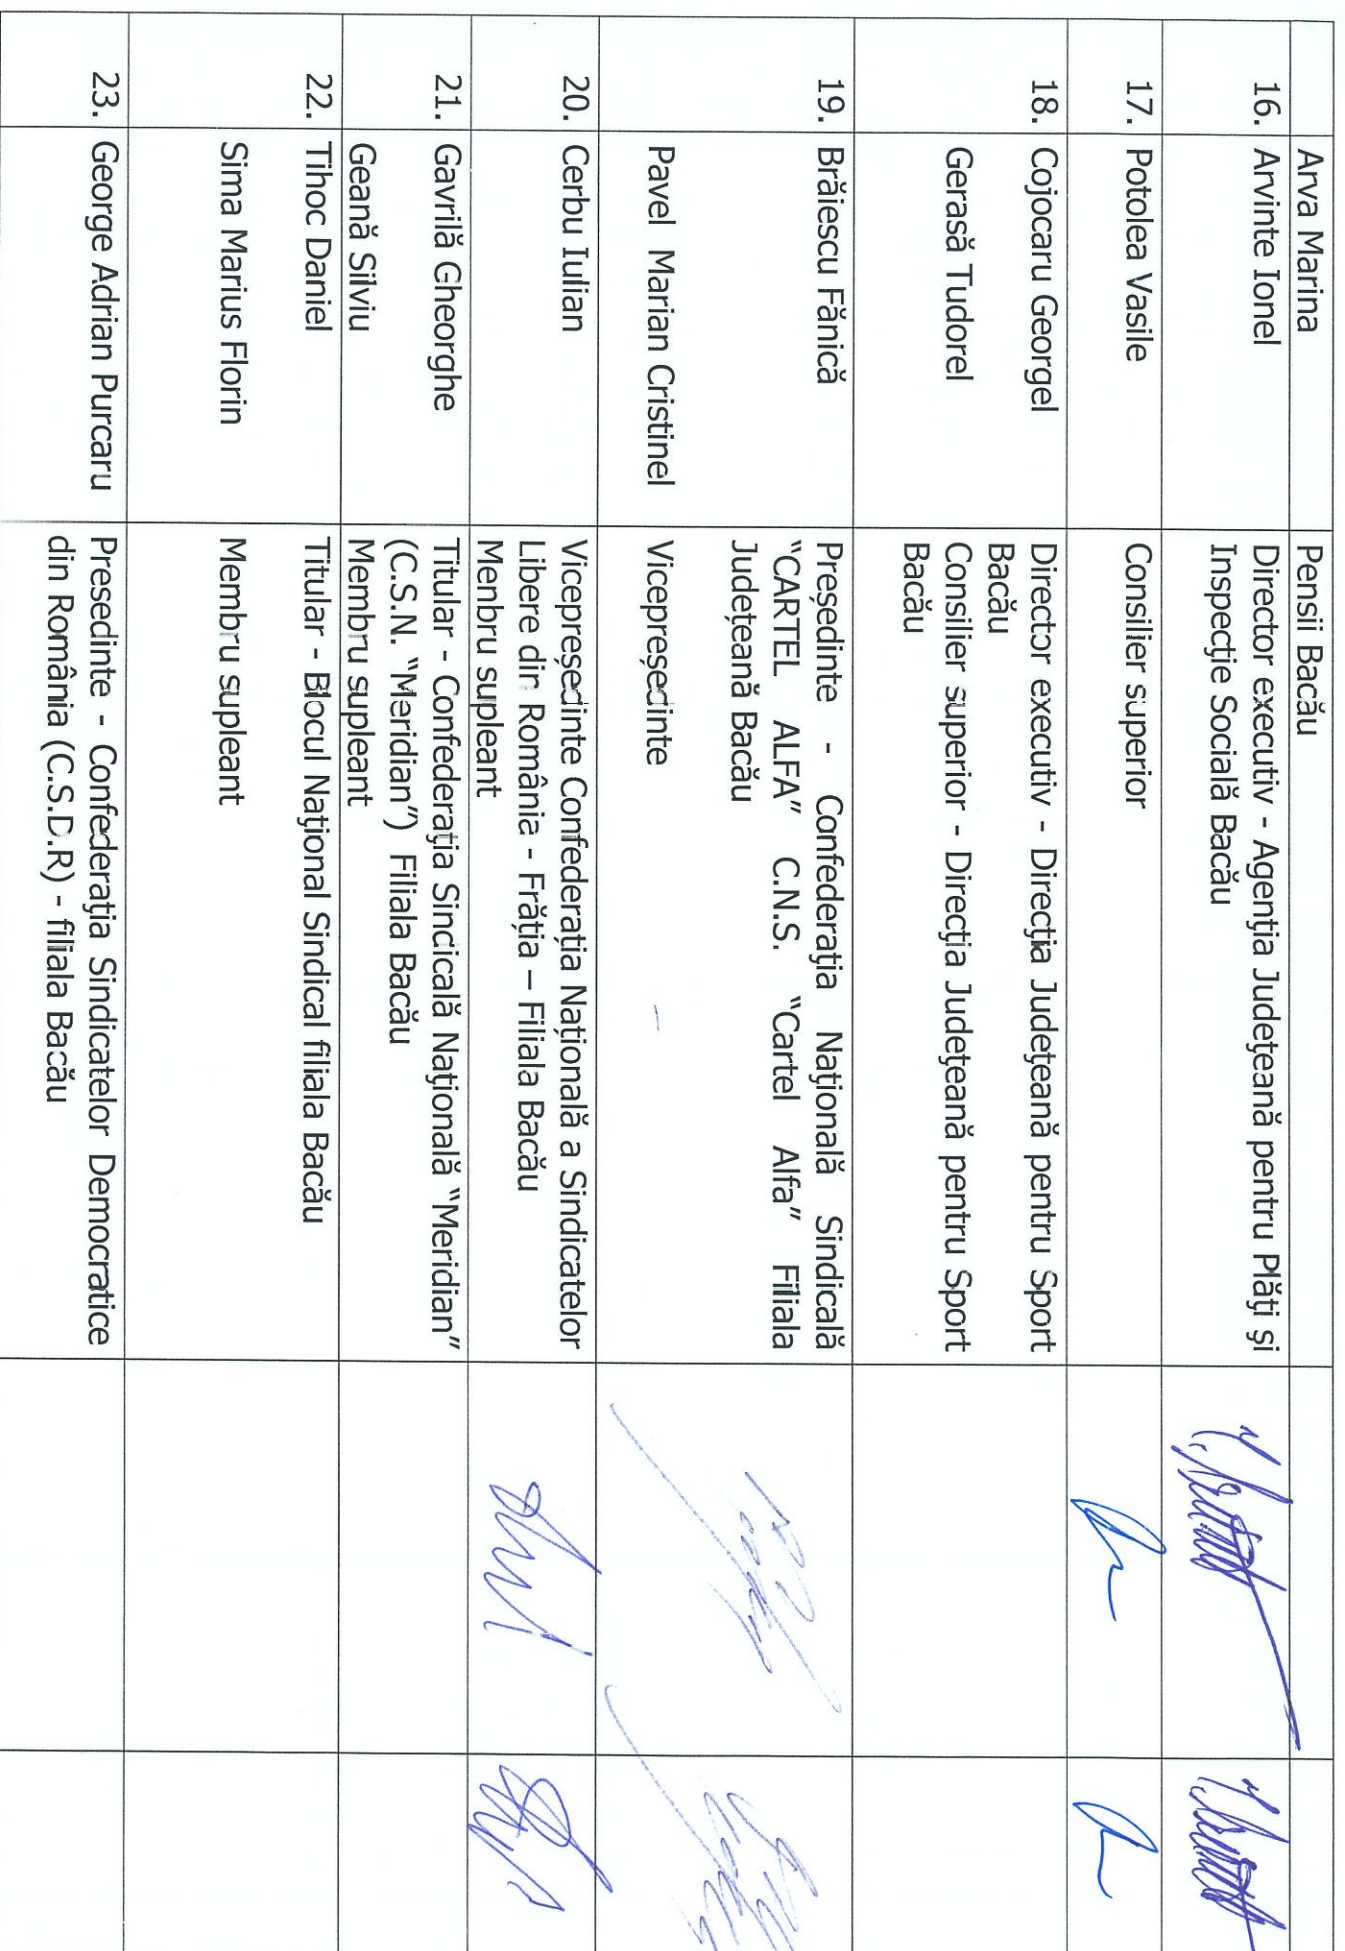 Arva Marina
Pensii Bacău
16.
Arvinte Ionel
Director executiv - Agenţia Judeţeană pentru Plăţi şi
Inspecţie Socială Bacău
17.
Potolea Vasile
Consilier superior
18.
Cojocaru Georgel
Director executiv - Direcţia Judeţeană pentru Sport
Bacău
Gerasă Tudorel
Consilier superior - Direcţia Judeţeană pentru Sport
Bacău
19.
Brăiescu Fănică
Președinte - Confederaţia Naţională Sindicală
“CARTEL ALFA” C.N.S. “Cartel Alfa” Filiala
Județeană Bacău
Pavel Marian Cristinel
Vicepreşedinte
20.
Cerbu Iulian
Vicepreşedinte Confederaţia Națională a Sindicatelor
Libere din România - Frăţia – Filiala Bacău
Menbru supleant
21.
Gavrilă Gheorghe
Titular - Confederaţia Sindicală Naţională “Meridian”
(C.S.N. “Meridian”) Filiala Bacău
Geană Silviu
Membru supleant
22.
Tihoc Daniel
Titular - Blocul Naţional Sindical filiala Bacău
Sima Marius Florin
Membru supleant
23.
George Adrian Purcaru
Presedinte - Confederaţia Sindicatelor Democratice
din România (C.S.D.R) - filiala Bacău